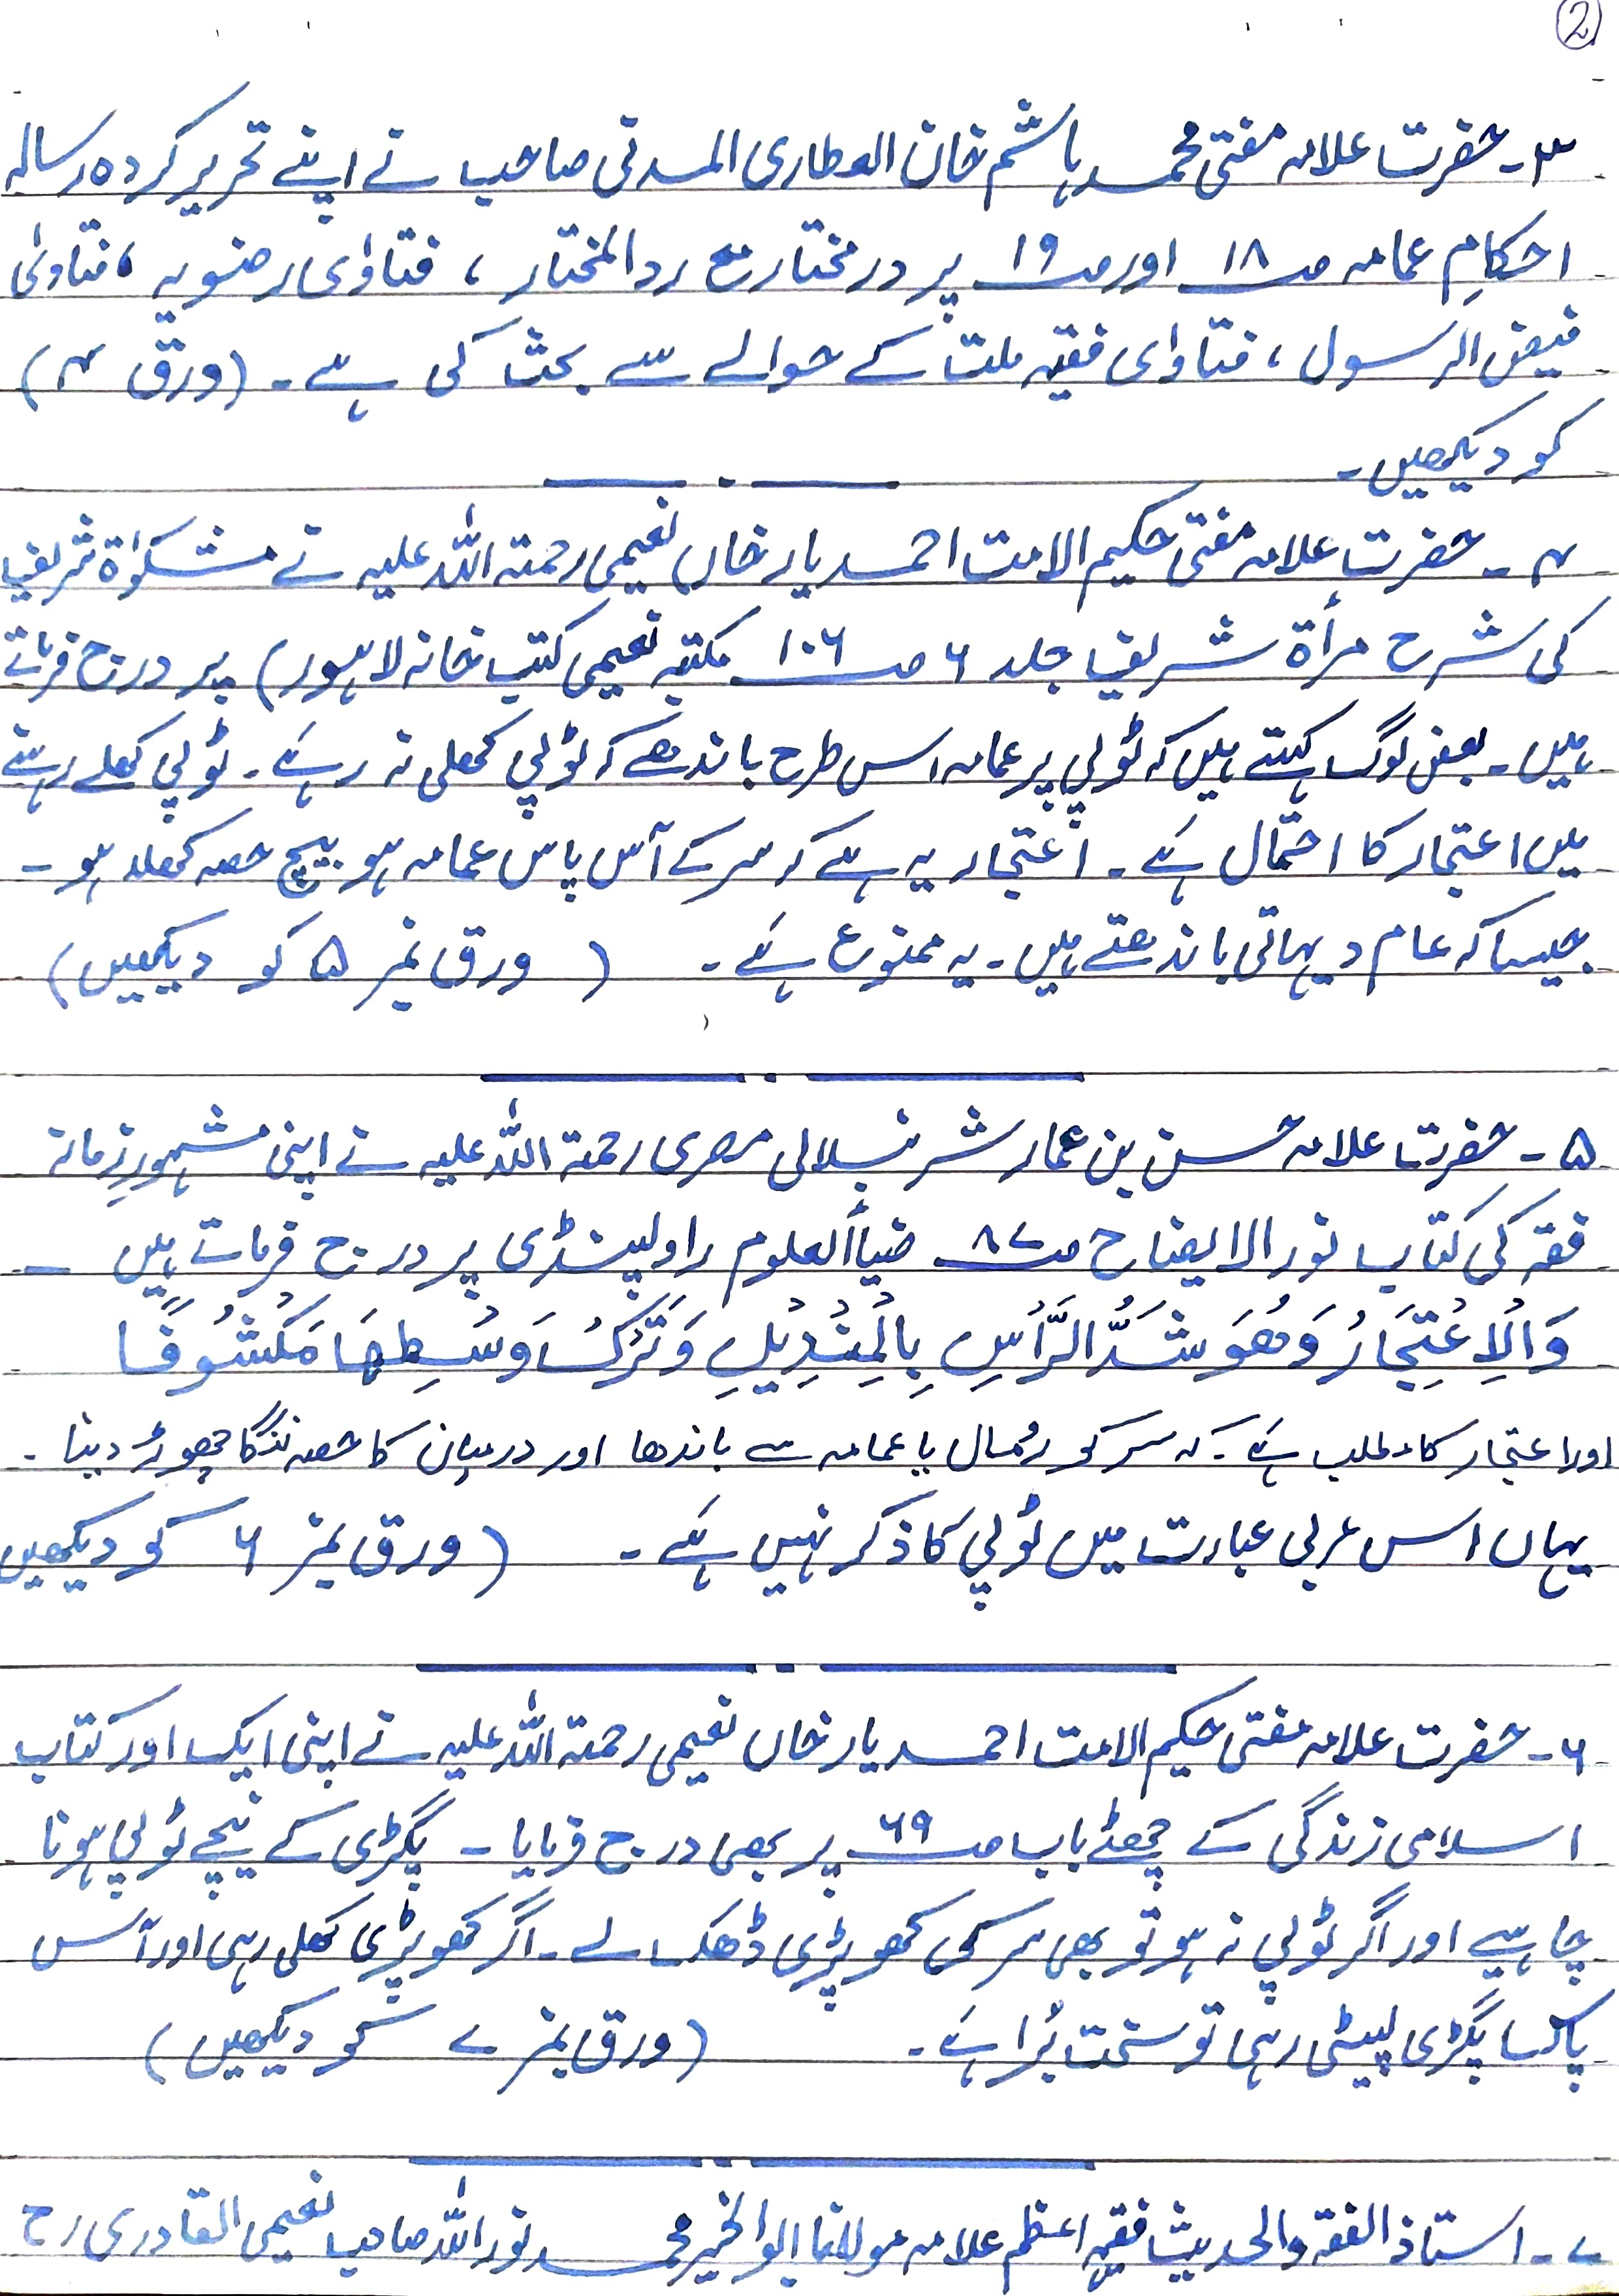 2
۳۔ حضرت علامہ مفتی محمد ہاشم خان العطاری المدنی صاحب نے اپنے تحریر کردہ رسالہ
احکامِ عمامہ صـ ۱۸ اور صـ ۱۹ پر در مختار مع رد المختار ، فتاوٰی رضویہ ، فتاوٰی
فیض الرسول ، فتاوٰی فقیہ ملت کے حوالے سے بحث کی ہے ۔ (ورق ۴)
کو دیکھیں۔
۴ ۔ حضرت علامہ مفتی حکیم الامت احمد یار خاں نعیمی رحمتہ اللہ علیہ نے مشکوٰۃ شریف
کی شرح مرأۃ شریف جلد ۶ صـ ۱۰۶ مکتبہ نعیمی کتب خانہ لاہور) پر درج فرماتے
ہیں ۔ بعض لوگ کہتے ہیں کہ ٹوپی پر عمامہ اس طرح باندھے کہ ٹوپی کھلی نہ رہے ۔ ٹوپی کھلے رہنے
میں اعتجار کا احتمال ہے ۔ اعتجار یہ ہے کہ سر کے آس پاس عمامہ ہو بیچ حصہ کھلا ہو ۔
جیسا کہ عام دیہاتی باندھتے ہیں ۔ یہ ممنوع ہے ۔ ( ورق نمبر ۵ کو دیکھیں)
۵ ۔ حضرت علامہ حسن بن عمار شرنبلالی مصری رحمتہ اللہ علیہ نے اپنی مشہورِ زمانہ
فقہ کی کتاب نور الایضاح صـ ۸۷ ضیأالعلوم راولپنڈی پر درج فرماتے ہیں ـ
وَالْاِعْتِجَارُ وَھُوَ شَدُّ الرَّأسِ بِالْمِنْدِیْلِ وَتَرْکُ وَسْطِھَا مَکْشُوْفًا
اور اعتجار کا مطلب ہے ۔ کہ سر کو رُمال یا عمامہ سے باندھا اور درمیان کا حصہ ننگا چھوڑ دینا ۔
یہاں اس عربی عبارت میں ٹوپی کا ذکر نہیں ہے ۔ (ورق نمبر ۶ کو دیکھیں
۶ ۔ حضرت علامہ مفتی حکیم الامت احمد یار خاں نعیمی رحمتہ اللہ علیہ نے اپنی ایک اور کتاب
اسلامی زندگی کے چھٹے باب صـ ۶۹ پر بھی درج فرمایا ۔ پگڑی کے نیچے ٹوپی ہونا
چاہیے اور اگر ٹوپی نہ ہو تو بھی سر کی کھوپڑی ڈھک لے ۔ اگر کھوپڑی کھلی رہی اور آس
پاس پگڑی لپیٹی رہی تو سخت بُرا ہے ۔ (ورق نمبر ۷ کو دیکھیں)
۷ ۔ استاذ الفقہ والحدیث فقیہِ اعظم علامہ مولانا ابو الخیر محمد نور اللہ صاحب نعیمی القادری رح